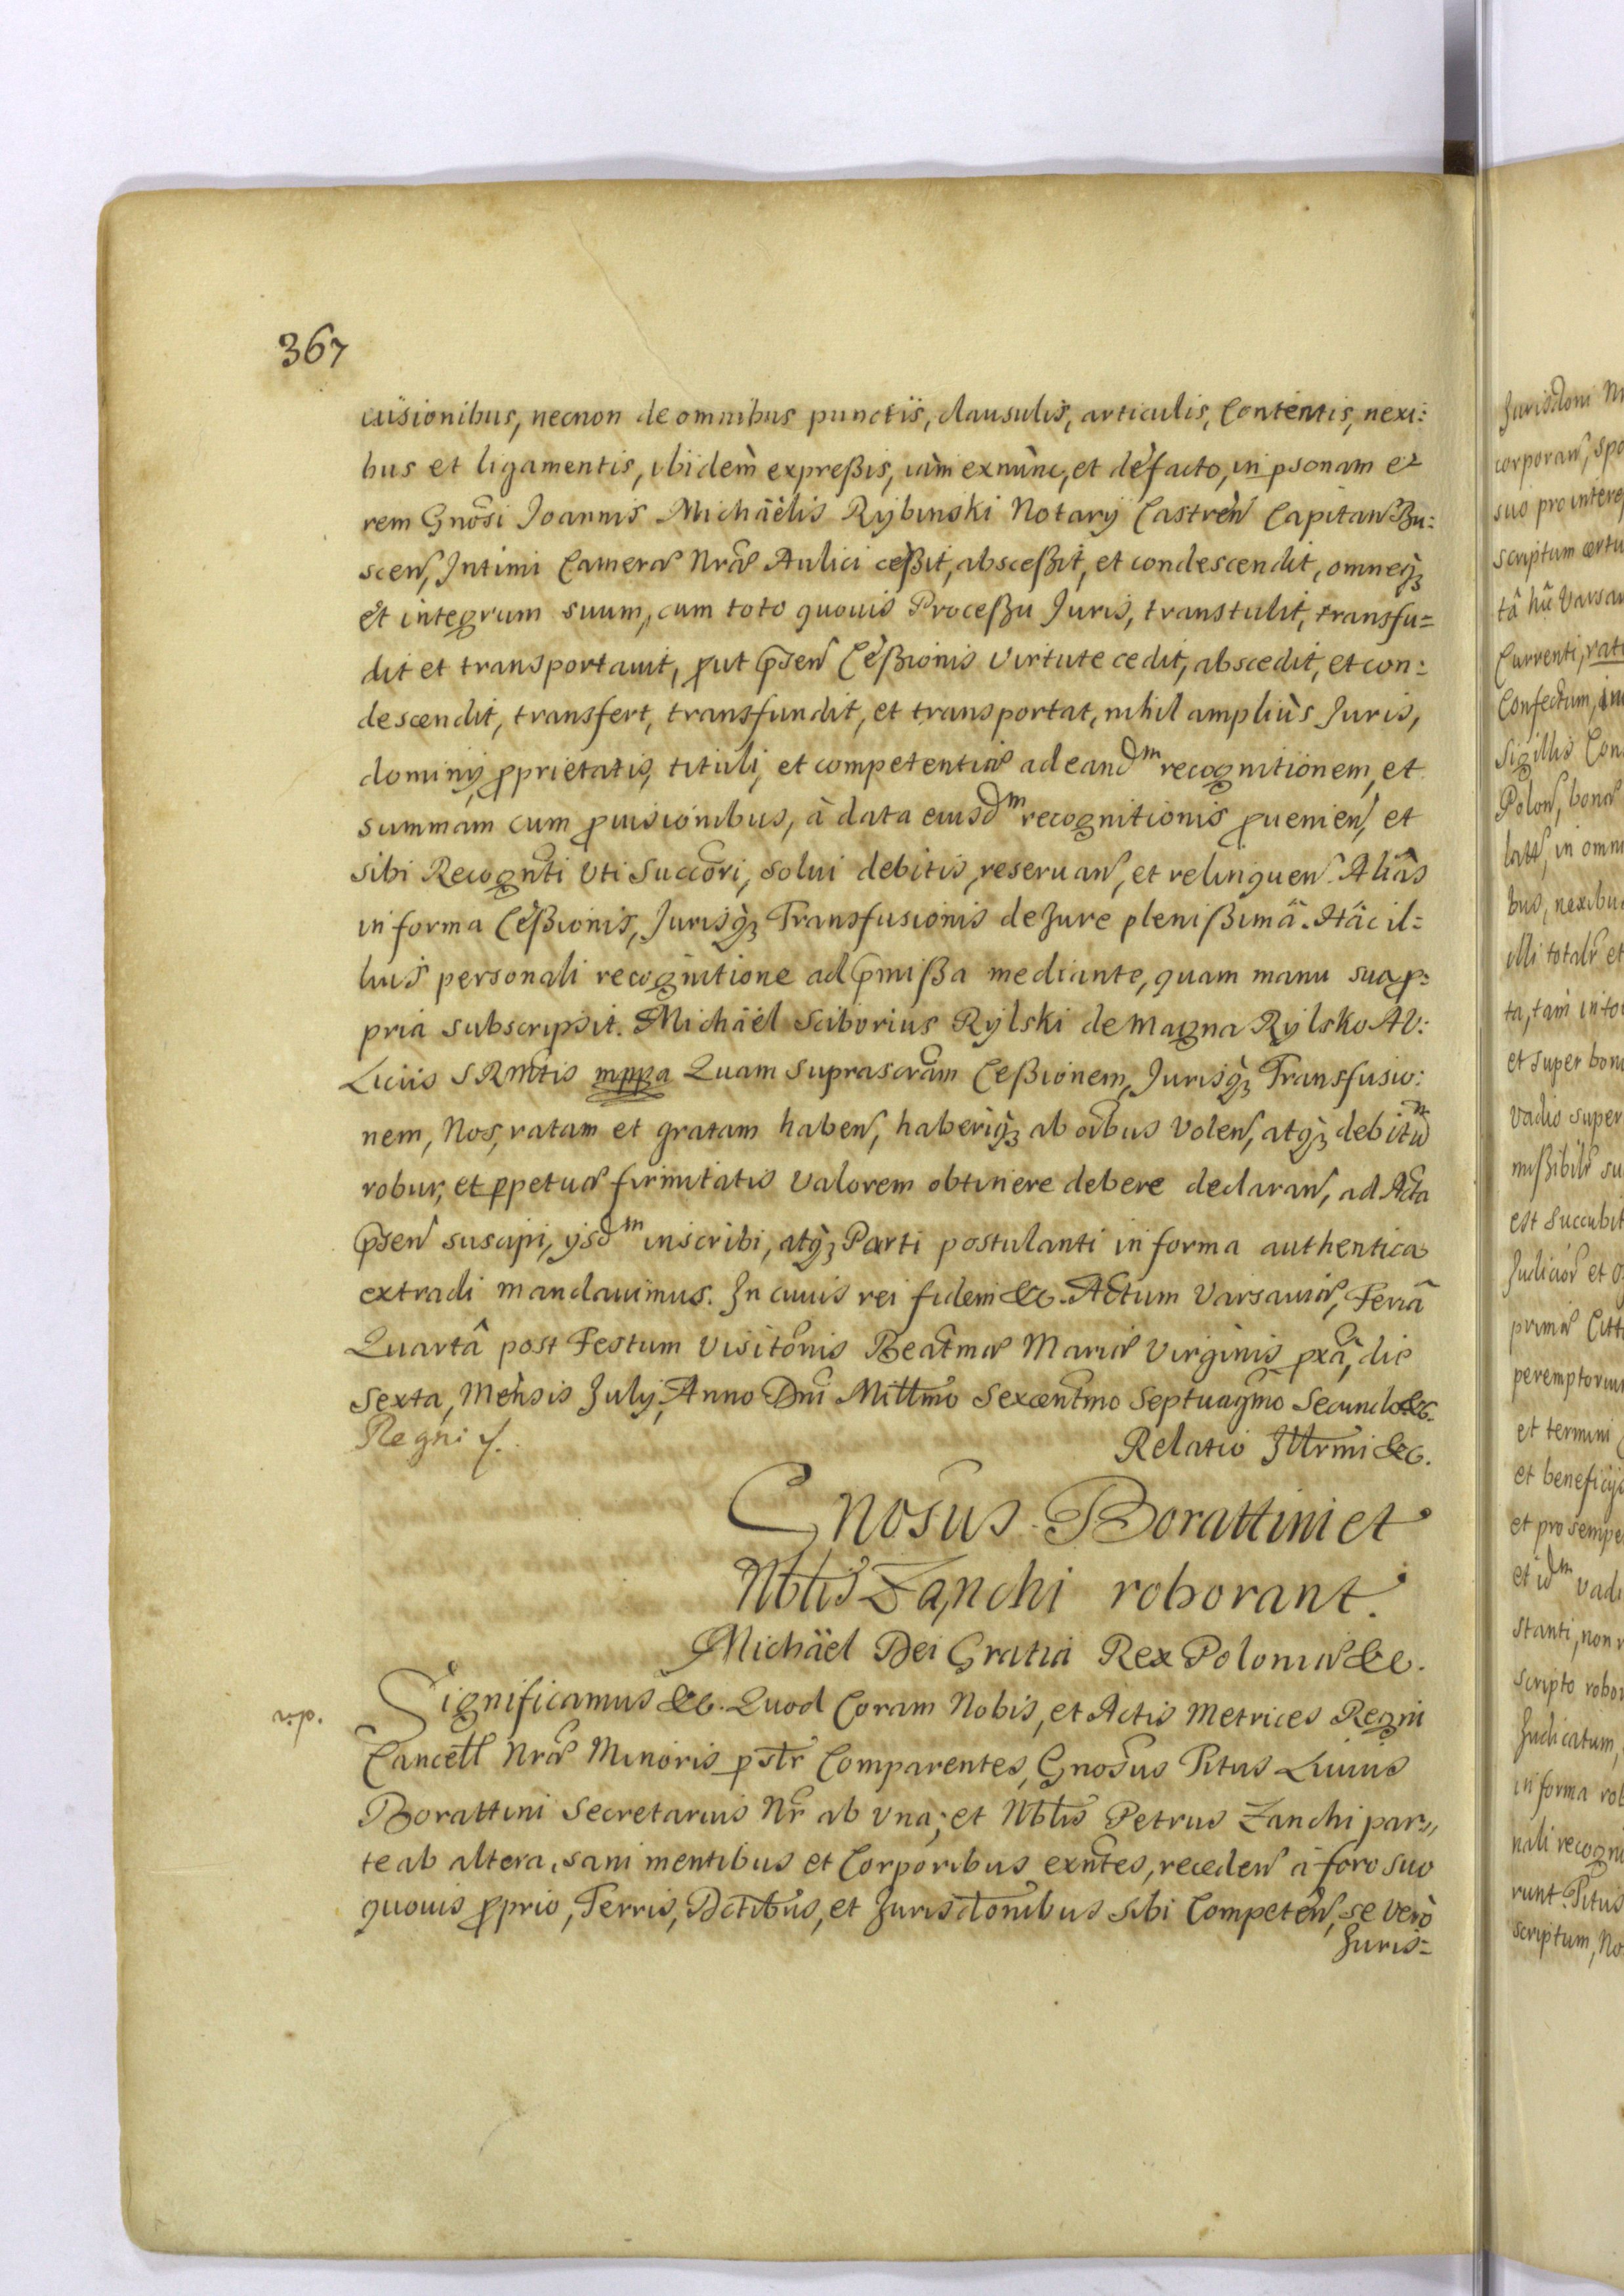 367
cüsionibus, necnon de omnibus punctis, clausulis, articulis, Contentis, nexi:
bus et ligamentis, ibidem expreßis, iam exnunc, et defacto, in psonam et
rem Gnosi Joannis Michäelis Rybinski Notarij Castren Capitan Bu:
scen, Intimi Camera Nra Aulici ceßit, absceßit, et condescendit, omneq3
et integrum suum, cum toto quouis Proceßu Juris, transtulit, transfu=
dit et transportauit, put psen Ceßionis virtute cedit, abscedit, et con:
descendit, transfert, transfundit, et transportat, nihil ampliùs Juris,
dominij, pprietatis, tituli, et competentiæ ad eandm recognitionem, et
summam cum puisionibus, à data eiusdm recognitionis puenien, et
sibi Recognti Uti Succori, solui debitis, reseruan, et relinquen. Aliâs
in forma Ceßionis, Jurisq3 Transfusionis de Jure plenißimâ. Hâc il=
lius personali recognitione ad pmißa mediante, quam manu sua p:
pria subscripsit. Michäel Sciborius Rylski de Magna Rylsko AU:
Licus SRMtis mppa Quam suprascram Ceßionem, Jurisq3 Transfusio:
nem, Nos, ratam et gratam haben, haberiq3 ab oibus Volen, atq3 debitum
robur, et ppetuæ firmitatis valorem obtinere debere declaran, ad Acta
psen suscipi, ijsdm inscribi, atq3 Parti postulanti in forma authentica
extradi mandauimus. In cuius rei fidem &c. Actum Varsauiæ, Feriâ
Quartâ post Festum Visitonis Beatmæ Mariæ Virginis pxâ, die
Sexta, Mensis July, Anno Dni Millmo Sexcentmo Septuagmo Secundo &c.
Regni
Relatio Illrmi &c.
Gnosus Borattini et
Nblis Zanchi roborant.
Michäel Dei Gratia Rex Poloniæ &c.
Significamus &c. Quod Coram Nobis, et Actis Metrices Regni
Cancell Nræ Minoris pstr Comparentes, Gnosus Titus Liuius
Borattini Secretarius Nr ab una, et Nblis Petrus Zanchi par,,
te ab altera, sani mentibus et Corporibus exntes, receden à foro suo
quouis pprio, Terris, Dctibus, et Jurisdtonibus sibi Competen, se verò
Juris=
Jurisdtoni
corporan,
suo pro
scriptum
tâ hû
Currenti,
Confectum,
Sigillis
Polon, bona
in omni
bus,
illi totalr et
ta, tam in
et super
vadio super
est Succubit
et
prima
et termini
et
et pro
vadi
stanti, non
scripto
Judicatum,
in forma
nali
runt. Titus
scriptum, No